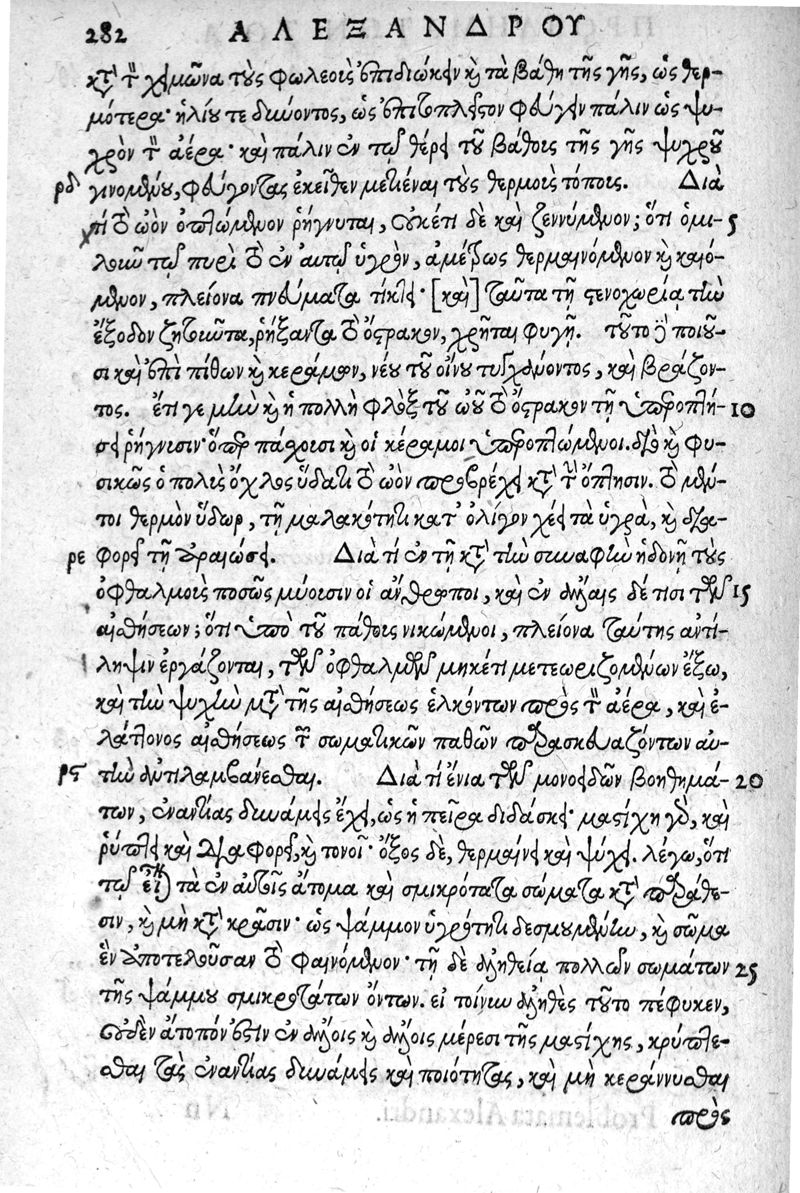 282 ΑΛΕΞΑΝΔΡΟΥ
κατὰ τὸν χειμῶνα τοὺς φωλεοὺς ἐπιδιώκειν καὶ τὰ βάθη τῆς γῆς, ὡς θερ-
μότερα· ἡλίου τε δύνοντος, ὡς ἐπιτοπλεῖστον φεύγειν πάλιν ὡς ψυ-
χρὸν τὸν ἀέρα· καὶ πάλιν ἐν τῷ θέρει τοῦ βάθους τῆς γῆς ψυχροῦ
ρδ γινομένου, φεύγοντας ἐκεῖθεν μετιέναι τοὺς θερμοὺς τόπους. Διὰ
τί τὸ ὠὸν ὀπτώμενον ῥήγνυται, οὐκέτι δὲ καὶ ζεννύμενον; ὅτι ὁμι- 5
λοιῶ τῷ πυρὶ τὸ ἐν αὐτῷ ὑγρὸν, ἀμέσως θερμαινόμενον καὶ καιό-
μενον, πλείονα πνεύματα τίκτει· [καὶ] ταῦτα τῇ στενοχωρίᾳ τὴν
ἔξοδον ζητοῦντα, ῥήξαντα τὸ ὄστρακον, χρῆται φυγῇ. τοῦτο δὲ ποιοῦ-
σι καὶ ἐπὶ πίθων καὶ κεράμων, νέου τοῦ οἴνου τυγχάνοντος, καὶ βράζον-
τος. ἔτι γε μὴν καὶ ἡ πολλὴ φλὸξ τοῦ ὠοῦ τὸ ὄστρακον τῇ ὑπεροπτή- 10
σει ῥήγνυσιν· ὅπερ πάσχουσι καὶ οἱ κέραμοι ὑπεροπτώμενοι. διὸ καὶ φυ-
σικῶς ὁ πολὺς ὄχλος ὕδατι τὸ ὠὸν προβρέχει κατὰ τὴν ὄπτησιν. τὸ μέν-
τοι θερμὸν ὕδωρ, τῇ μαλακότητι κατ' ὀλίγον χεῖ τὰ ὑγρὰ, καὶ δια-
ρε φορεῖ τῇ ἀραιώσει. Διὰ τί ἐν τῇ κατὰ τὴν συναφὴν ἡδονῇ τοὺς
ὀφθαλμοὺς ποσῶς μύουσιν οἱ ἄνθρωποι, καὶ ἐν ἄλλαις δέ τισι τῶν 15
αἰσθήσεων; ὅτι ὑπὸ τοῦ πάθους νικώμενοι, πλείονα ταύτης ἀντί-
ληψιν ἐργάζονται, τῶν ὀφθαλμῶν μηκέτι μετεωριζομένων ἔξω,
καὶ τὴν ψυχὴν μετὰ τῆς αἰσθήσεως ἑλκόντων πρὸς τὸν ἀέρα, καὶ ἐ-
λάττονος αἰσθήσεως τῶν σωματικῶν παθῶν παρασκευαζόντων αὐ-
ρϛ τὴν ἀντιλαμβάνεσθαι. Διὰ τί ἔνια τῶν μονοειδῶν βοηθημά- 20
των, ἐναντίας δυνάμεις ἔχει, ὡς ἡ πεῖρα διδάσκει· μαστίχη γὰρ, καὶ
ῥύπτει καὶ διαφορεῖ, καὶ τονοῖ· ὄξος δὲ, θερμαίνει καὶ ψύχει. λέγω, ὅτι
τῷ εἶναι τὰ ἐν αὐτοῖς ἄτομα καὶ σμικρότατα σώματα κατὰ παράθε-
σιν, καὶ μὴ κατὰ κρᾶσιν· ὡς ψάμμον ὑγρότητι δεσμουμένην, καὶ σῶμα
ἓν ἀποτελοῦσαν τὸ φαινόμενον· τῇ δὲ ἀληθείᾳ πολλῶν σωμάτων 25
τῆς ψάμμου σμικροτάτων ὄντων. εἰ τοίνυν ἀληθὲς τοῦτο πέφυκεν,
οὐδὲν ἄτοπόν ἐστιν ἐν ἄλλοις καὶ ἄλλοις μέρεσι τῆς μαστίχης, κρύπτε-
σθαι τὰς ἐναντίας δυνάμεις καὶ ποιότητας, καὶ μὴ κεράννυσθαι
πρὸς